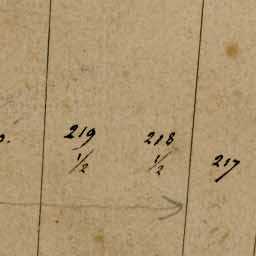 219 218
1/2 1/2 217